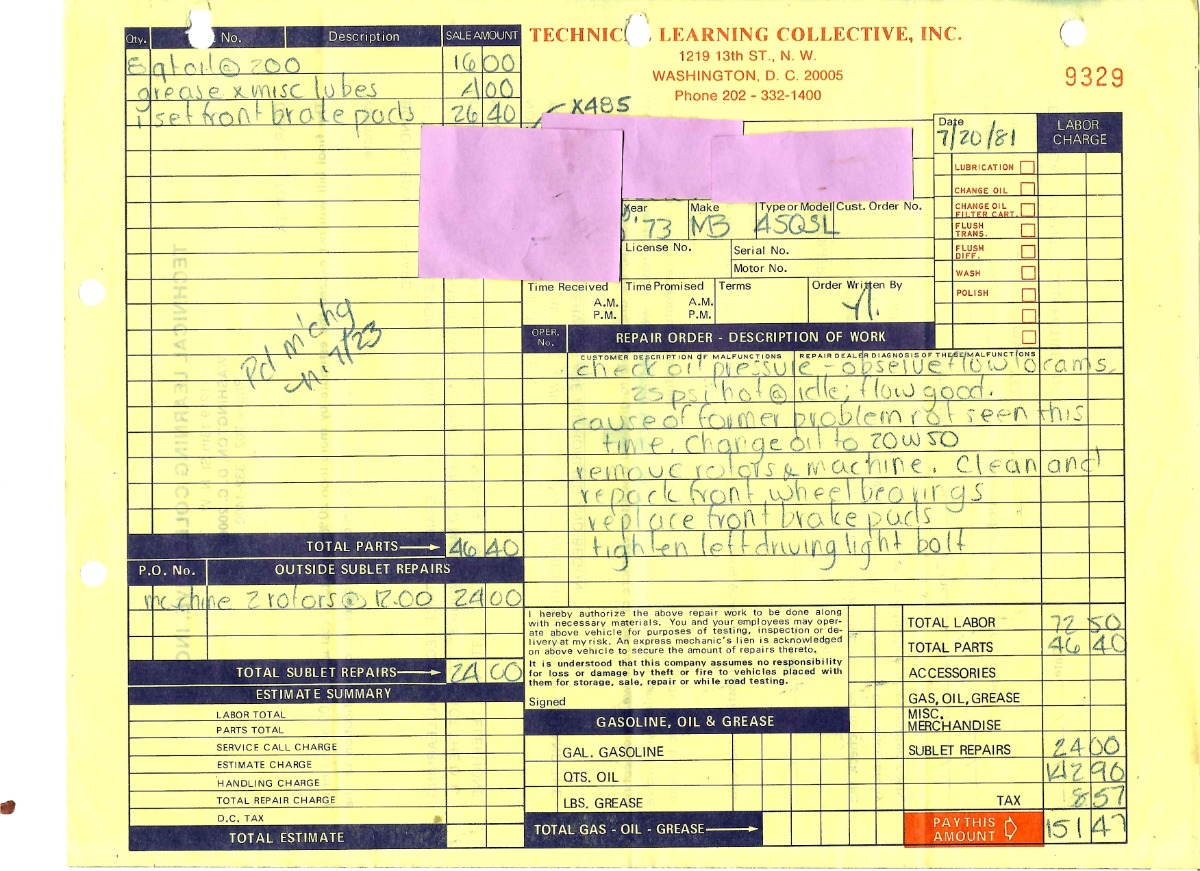 TECHNIC L LEARNING COLLECTIVE, INC.
1219 13th ST., N. W.
WASHINGTON, D. C. 20005
Phone 202 - 332-1400
9329
X485
Qty. No. Description SALE AMOUNT
8 qt oil @ 200 16 00
grease & misc lubes 4 00
1 set front brake pads 26 40
Pd m'chg
7/23
TOTAL PARTS 46 40
P.O. No. OUTSIDE SUBLET REPAIRS
machine 2 rotors @ 12.00 24 00
TOTAL SUBLET REPAIRS 24 00
ESTIMATE SUMMARY
LABOR TOTAL
PARTS TOTAL
SERVICE CALL CHARGE
ESTIMATE CHARGE
HANDLING CHARGE
TOTAL REPAIR CHARGE
D.C. TAX
TOTAL ESTIMATE
Date
7/20/81
LABOR CHARGE
LUBRICATION
CHANGE OIL
CHANGE OIL
FILTER CART.
FLUSH
TRANS.
FLUSH
DIFF.
WASH
POLISH
Year Make Type or Model Cust. Order No.
'73 MB 450SL
License No. Serial No.
Motor No.
Time Received Time Promised Terms Order Written By
A.M. A.M.
P.M. P.M.
OPER. No. REPAIR ORDER - DESCRIPTION OF WORK
CUSTOMER DESCRIPTION OF MALFUNCTIONS REPAIR DEALER DIAGNOSIS OF THESE MALFUNCTIONS
check oil pressure - observe flow to cams.
25 psi hot @ idle; flow good.
cause of former problem not seen this
time. Change oil to 20W50
remove rotors & machine. Clean and
repack front wheel bearings
replace front brake pads
tighten left driving light bolt
I hereby authorize the above repair work to be done along
with necessary materials. You and your employees may oper-
ate above vehicle for purposes of testing, inspection or de-
livery at my risk. An express mechanic's lien is acknowledged
on above vehicle to secure the amount of repairs thereto.
It is understood that this company assumes no responsibility
for loss or damage by theft or fire to vehicles placed with
them for storage, sale, repair or while road testing.
Signed
GASOLINE, OIL & GREASE
GAL. GASOLINE
QTS. OIL
LBS. GREASE
TOTAL GAS - OIL - GREASE
TOTAL LABOR 72 50
TOTAL PARTS 46 40
ACCESSORIES
GAS, OIL, GREASE
MISC.
MERCHANDISE
SUBLET REPAIRS 24 00
142 90
TAX 8 57
PAY THIS
AMOUNT 151 47